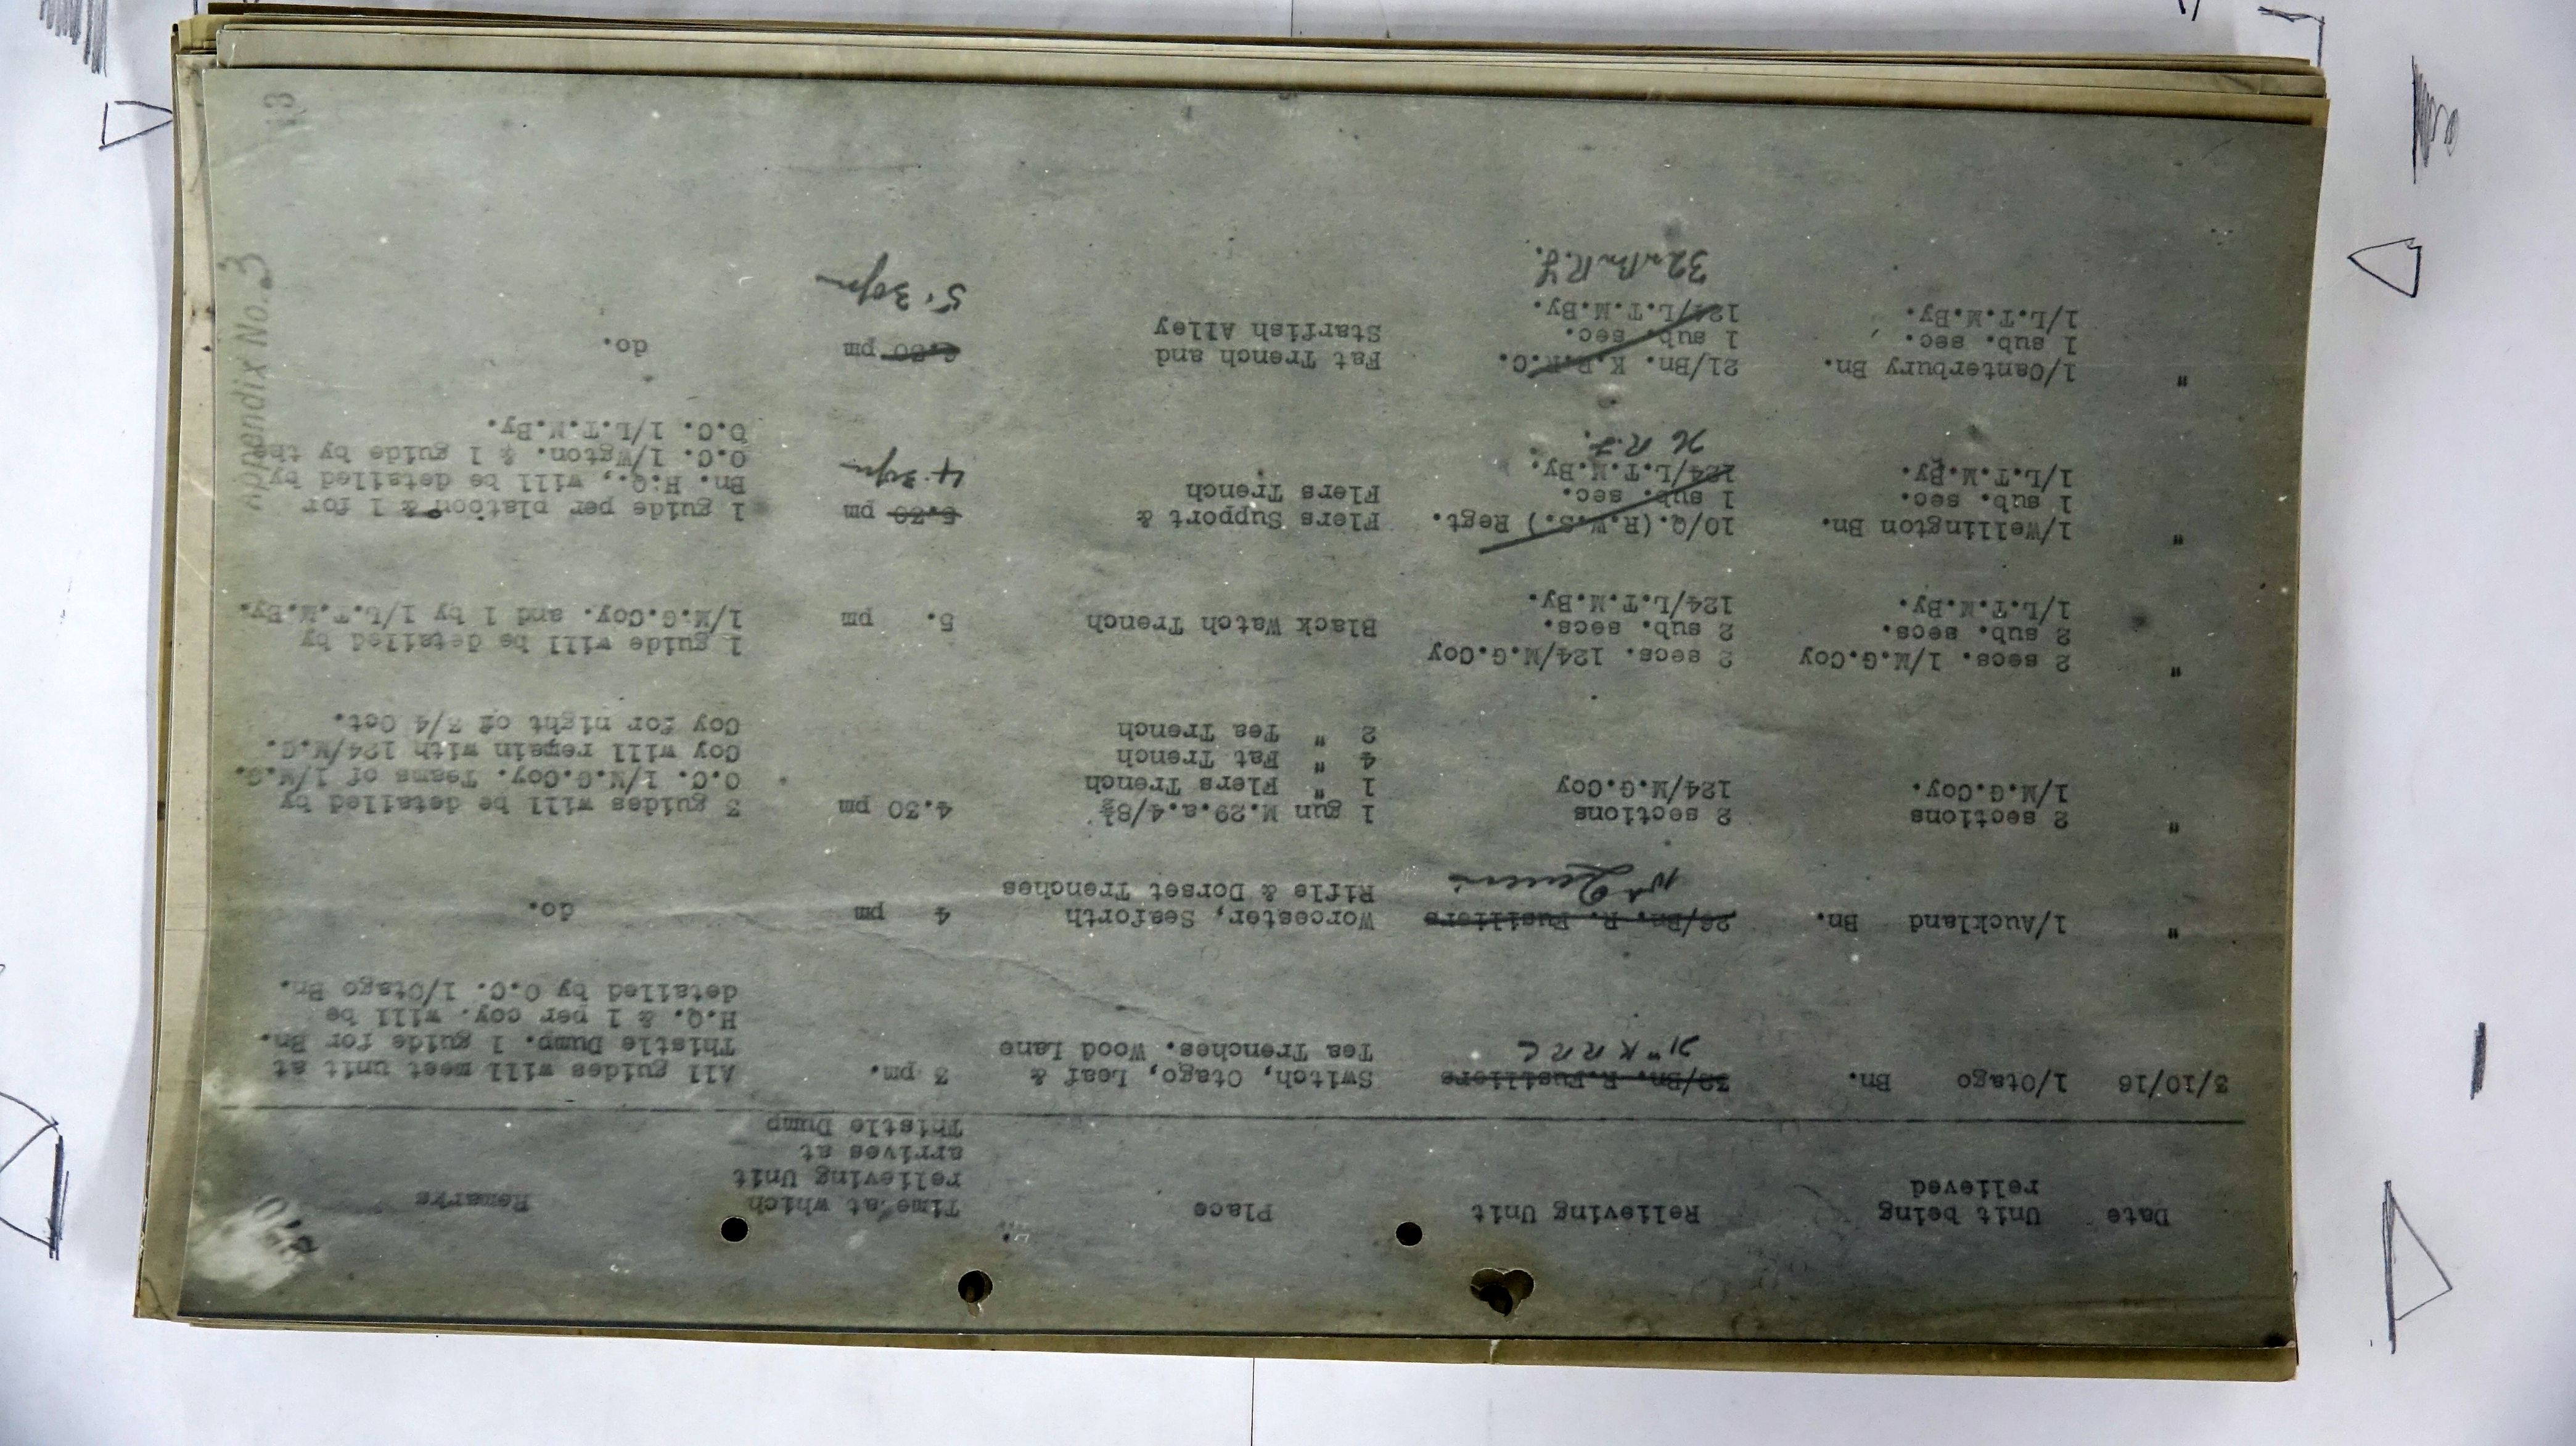 Date
Unit being
relieved
Relieving Unit
Place
Time at which
relieving Unit
arrives at
Thistle Dump
Remarks
3/10/16
1/Otago Bn.
32/Bn. R.Fusiliers
21st K R R C
Switch, Otago, Leaf &
Tea Trenches. Wood Lane
3 pm.
All guides will meet unit at
Thistle Dump. 1 guide for Bn.
H.Q. & 1 per coy. will be
detailed by O.C. 1/Otago Bn.
"
1/Auckland Bn.
26/Bn. R. Fusiliers
Queens
Worcester, Seaforth
Rifle & Dorset Trenches
4 pm
do.
"
2 sections
1/M.G.Coy.
2 sections
124/M.G.Coy
1 gun M.29.a.4/8½
1 " Flers Trench
4 " Fat Trench
2 " Tea Trench
4.30 pm
3 guides will be detailed by
O.C. 1/M.G.Coy. Teams of 1/M.G.
Coy will remain with 124/M.G.
Coy for night of 3/4 Oct.
"
2 secs. 1/M.G.Coy
2 sub. secs.
1/L.T.M.By.
2 secs. 124/M.G.Coy
2 sub. secs.
124/L.T.M.By.
Black Watch Trench
5. pm
1 guide will be detailed by
1/M.G.Coy. and 1 by 1/L.T.M.By.
"
1/Wellington Bn
1 sub. sec.
1/L.T.M.By.
10/Q.(R.W.S.) Regt.
1 sub. sec.
124/L.T.M.By.
26 R.F.
Flers Support &
Flers Trench
5.30 pm
4.30pm
1 guide per platoon & 1 for
Bn. H.Q., will be detailed by
O.C. 1/Wgton. & 1 guide by the
O.C. 1/L.T.M.By.
"
1/Canterbury Bn.
1 sub. sec.
1/L.T.M.By.
21/Bn. K.R.R.C.
1 sub. sec.
124/L.T.M.By.
32nd Bn R.F.
Fat Trench and
Starfish Alley
pm
5.30pm
do.
Appendix No. 3